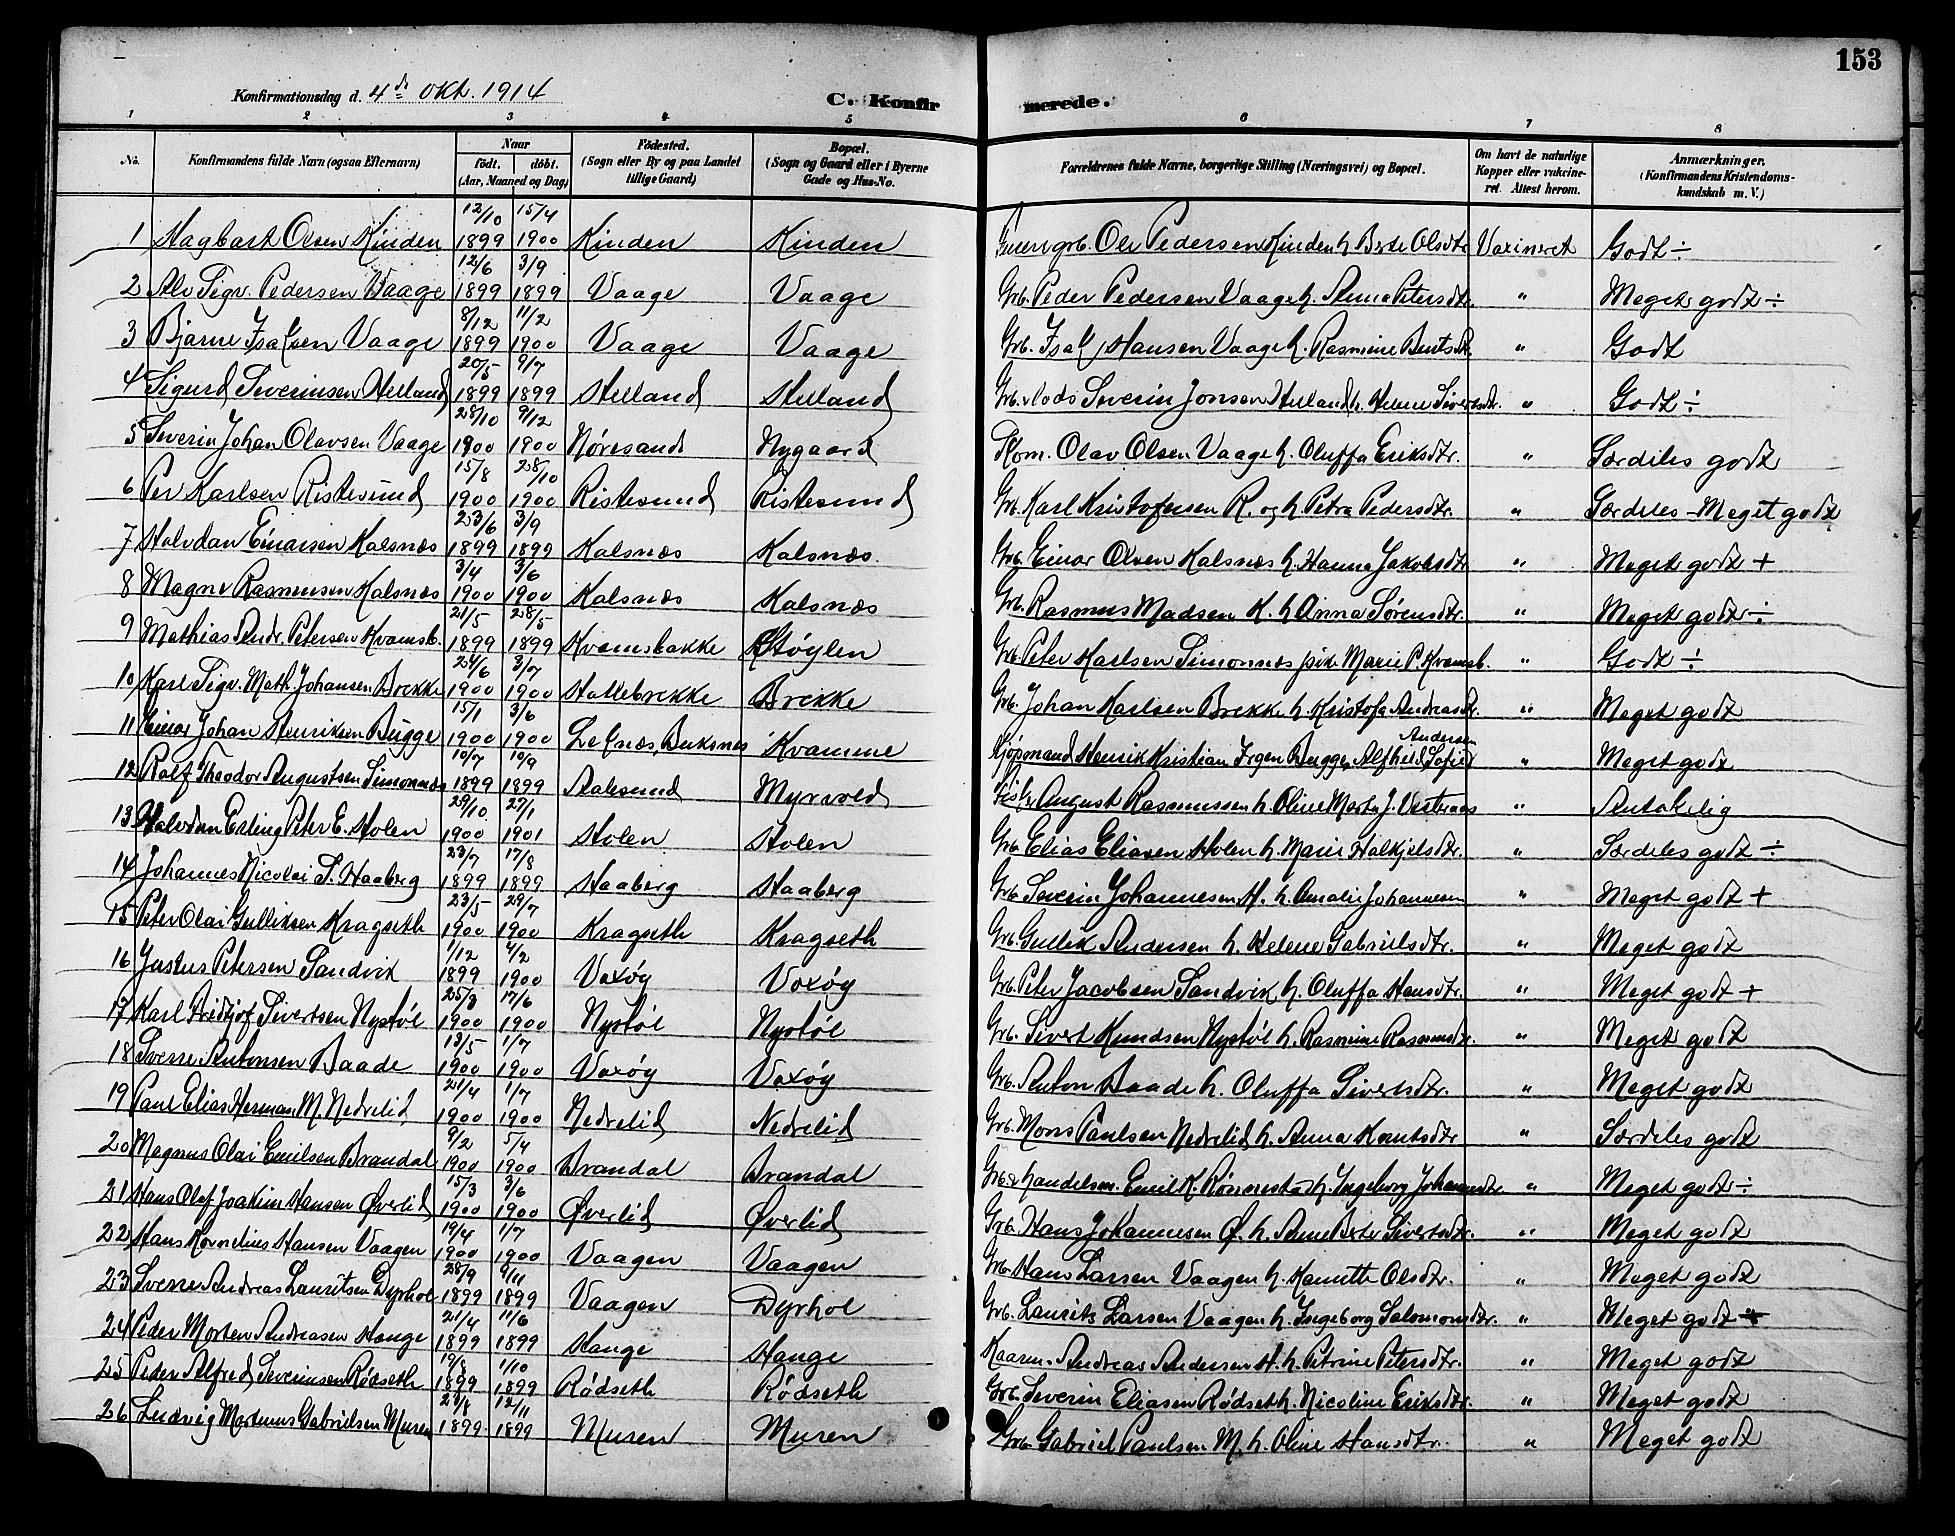 153
Konfirmationsdag d. 4de Okt. 1914 C. Konfirmerede.
1 2 3 4 5 6 7 8
No. Konfirmandens fulde Navn (ogsaa Efternavn) Naar født. døbt. (Aar, Maaned og Dag) Fødested. (Sogn eller By og paa Landet tillige Gaard) Bopæl. (Sogn og Gaard eller i Byerne Gade og Hus-No. Forældrenes fulde Navne, borgerlige Stilling (Næringsvei) og Bopæl. Om havt de naturlige Kopper eller vakcineret. Attest herom. Anmærkninger. (Konfirmandens Kristendomskundskab m. V.)
1 Hagbart Olsen Kinden 12/10 1899 15/4 1900 Kinden Kinden Ole Pedersen Kinden h. Berte Olsdtr. Vaxineret Godt ÷
2 Alv Sigv. Pedersen Vaage 12/6 1899 3/9 1899 Vaage Vaage Grb. Peder Pedersen Vaage h. Anne Petersdtr. " Meget godt ÷
3 Bjarne Isaksen Vaage 8/12 1899 11/2 1900 Vaage Vaage Grb. Isak Hansen Vaage h. Rasmine Bentsdtr. " Godt
4 Sigurd Severinsen Helland 20/5 1899 9/7 1899 Helland Helland Grb. Severin Jonsen Helland h. Helene Sivertsdtr. " Godt ÷
5 Severin Johan Olavsen Vaage 28/10 1900 9/12 1900 Høresand Nygaard Olav Olsen Vaage h. Oluffa Eriksdtr. " Særdeles godt
6 Per Karlsen Ristesund 15/8 1900 28/10 1900 Ristesund Ristesund Grb. Karl Kristofersen R. og h. Petra Pedersdtr. " Særdeles - Meget godt
7 Halvdan Einarsen Kalsnæs 23/6 1899 3/9 1899 Kalsnæs Kalsnæs. Grb. Einar Olsen Kalsnæs h. Hanna Jakobsdtr " Meget godt +
8 Magne Rasmusen Kalsnæs 3/4 1900 3/6 1900 Kalsnæs Kalsnæs Grb. Rasmus Madsen K. h. Anna Sørensdtr. " Meget godt ÷
9 Mathias Andr. Petersen Kvamsb. 21/5 1899 28/5 1899 Kvamsbakke Støylen Grb. Peter Karlsen Simonnæs pik. Marie P. Kvamsb. " Godt ÷
10 Karl Sigv. Math. Johansen Brekke 24/6 1900 3/7 1900 Hallebrekke Brekke Grb. Johan Karlsen Brekke h. Kristofa Andreasdtr. " Meget godt
11 Einar Johan Henriksen Bugge 15/1 1900 3/6 1900 Leknæs, Buksnes Kvamme Kjøpmand Henrik Kristian Irgen Bugge, Alfhild Sofie Andersen " Meget godt
12 Rolf Theodor Augustsen Simonnæs 10/7 1899 10/9 1899 Aalesund Myrvold August Rasmussen h. Oline Marta J. Vestnæs " Antakelig
13 Halvdan Erling Peter E. Holen 29/10 1900 27/1 1901 Holen Holen Grb. Elias Eliasen Holen h. Marie Falkjelsdtr. " Særdeles godt ÷
14 Johannes Nicolai S. Haaberg 23/7 1899 17/8 1899 Haaberg Haaberg Grb. Severin Johannesen H. h. Amalie Johannesen " Meget godt +
15 Peter Olai Gulliksen Kragseth 23/5 1900 29/7 1900 Kragseth Kragseth Grb. Gullek Andersen h. Helene Gabrielsdtr. " Meget godt
16 Justus Petersen Sandvik 1/12 1899 4/2 1900 Voxøy Voxøy Grb. Peter Jacobsen Sandvik h. Oluffa Hansdtr. " Meget godt +
17 Karl Fridtjof Sivertsen Nystøl 25/3 1900 17/6 1900 Nystøl Nystøl Grb. Sivert Knudsen Nystøl h. Rasmine Rasmusdtr. " Meget godt
18 Sverre Antonsen Baade 13/5 1900 1/7 1900 Voxøy Voxøy Grb. Anton Baade h. Oluffa Sivertsdtr. " Meget godt
19 Paul Elias Herman M. Nedrelid 21/4 1900 1/7 1900 Nedrelid Nedrelid Grb. Mons Paulsen Nedrelid h. Anna Knutsdtr " Særdeles godt
20 Magnus Olai Emilsen Brandal 9/2 1900 5/4 1900 Brandal Brandal Grb. & handelsm. Emil K. Rønnestad h. Ingeborg Johansdtr. " Meget godt ÷
21 Hans Olaf Joakim Hansen Øvrelid 15/3 1900 3/6 1900 Øvrelid Øvrelid Grb. Hans Johannesen Ø. h. Anne Berte Sivertsdtr. " Meget godt
22 Hans Kornelius Hansen Vaagen 19/4 1900 1/7 1900 Vaagen Vaagen Grb. Hans Larsen Vaagen h. Olsdtr. " Meget godt
23 Sverre Andreas Lauritsen Dyrhol 28/9 1899 9/11 1899 Vaagen Dyrhol Grb. Laurits Larsen Vaagen h. Ingeborg Salomonsdtr. " Meget godt +
24 Peder Morten Andreasen Hauge 21/4 1899 11/6 1899 Hauge Hauge Kaarm. Andreas Andersen H. h. Petrine Petersdtr. " Meget godt
25 Peder Alfred Severinsen Rødseth 19/8 1899 1/10 1899 Rødseth Rødseth Grb. Severin Eliasen Rødseth h. Nicoline Eriksdtr. " Meget godt
26 Ludvig Martinus Gabrielsen Muren 23/8 1899 12/11 1899 Muren Muren Grb. Gabriel Paulsen M. h. Oline Hansdtr. " Meget godt